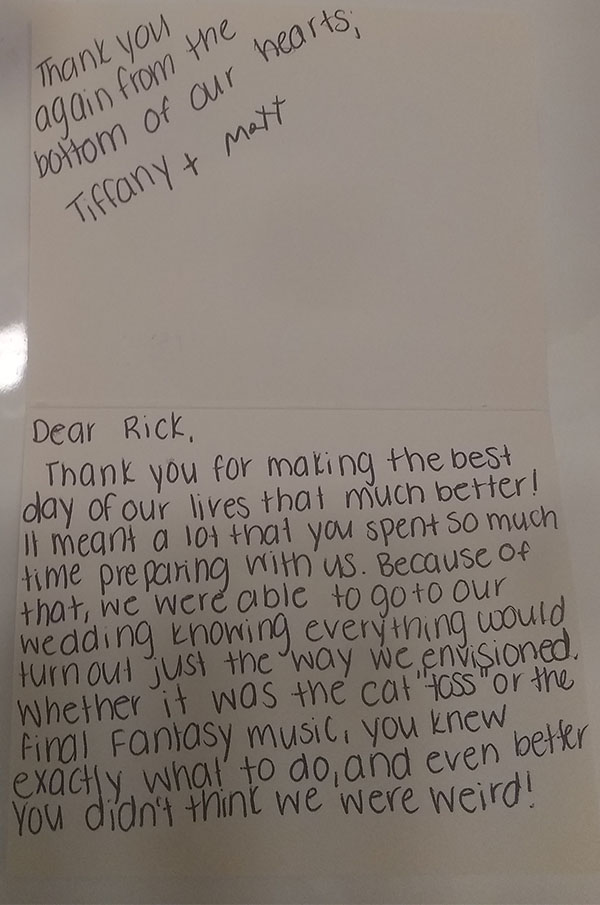 Thank you
again from the
bottom of our hearts,
Tiffany + Matt
Dear Rick,
Thank you for making the best
day of our lives that much better!
It meant a lot that you spent so much
time preparing with us. Because of
that, we were able to go to our
wedding knowing everything would
turn out just the way we envisioned.
Whether it was the cat "toss" or the
Final Fantasy music, you knew
exactly what to do, and even better
you didn't think we were weird!